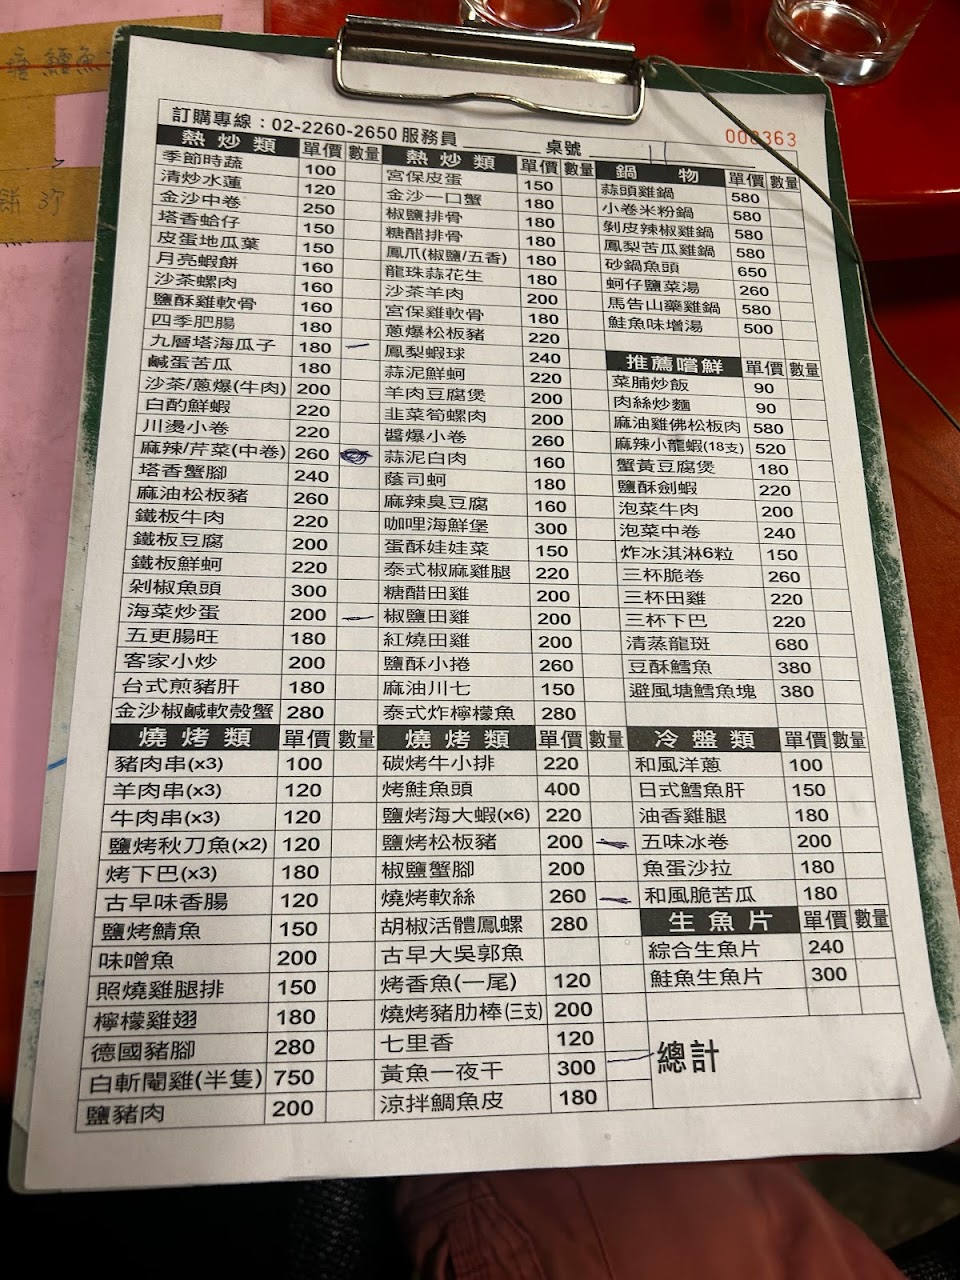 訂購專線：02-2260-2650 服務員 桌號
熱炒類 單價 數量
季節時蔬 100
清炒水蓮 120
金沙中卷 250
塔香蛤仔 150
皮蛋地瓜葉 150
月亮蝦餅 160
沙茶螺肉 160
鹽酥雞軟骨 160
四季肥腸 180
九層塔海瓜子 180
鹹蛋苦瓜 180
沙茶/蔥爆(牛肉) 200
白酌鮮蝦 220
川燙小卷 220
麻辣/芹菜(中卷) 260
塔香蟹腳 240
麻油松板豬 260
鐵板牛肉 220
鐵板豆腐 200
鐵板鮮蚵 220
剁椒魚頭 300
海菜炒蛋 200
五更腸旺 180
客家小炒 200
台式煎豬肝 180
金沙椒鹹軟殼蟹 280
熱炒類 單價 數量
宮保皮蛋 150
金沙一口蟹 180
椒鹽排骨 180
糖醋排骨 180
鳳爪(椒鹽/五香) 180
龍珠蒜花生 180
沙茶羊肉 200
宮保雞軟骨 180
蔥爆松板豬 220
鳳梨蝦球 240
蒜泥鮮蚵 220
羊肉豆腐煲 200
韭菜筍螺肉 200
醬爆小卷 260
蒜泥白肉 160
蔭司蚵 180
麻辣臭豆腐 160
咖哩海鮮堡 300
蛋酥娃娃菜 150
泰式椒麻雞腿 220
糖醋田雞 200
椒鹽田雞 200
紅燒田雞 200
鹽酥小捲 260
麻油川七 150
泰式炸檸檬魚 280
鍋物 單價 數量
蒜頭雞鍋 580
小卷米粉鍋 580
剝皮辣椒雞鍋 580
鳳梨苦瓜雞鍋 580
砂鍋魚頭 650
蚵仔鹽菜湯 260
馬告山藥雞鍋 580
鮭魚味增湯 500
推薦嚐鮮 單價 數量
菜脯炒飯 90
肉絲炒麵 90
麻油雞佛松板肉 580
麻辣小龍蝦(18支) 520
蟹黃豆腐煲 180
鹽酥劍蝦 220
泡菜牛肉 200
泡菜中卷 240
炸冰淇淋6粒 150
三杯脆卷 260
三杯田雞 220
三杯下巴 220
清蒸龍斑 680
豆酥鱈魚 380
避風塘鱈魚塊 380
燒烤類 單價 數量
豬肉串(x3) 100
羊肉串(x3) 120
牛肉串(x3) 120
鹽烤秋刀魚(x2) 120
烤下巴(x3) 180
古早味香腸 120
鹽烤鯖魚 150
味噌魚 200
照燒雞腿排 150
檸檬雞翅 180
德國豬腳 280
白斬閹雞(半隻) 750
鹽豬肉 200
燒烤類 單價 數量
碳烤牛小排 220
烤鮭魚頭 400
鹽烤海大蝦(x6) 220
鹽烤松板豬 200
椒鹽蟹腳 200
燒烤軟絲 260
胡椒活體鳳螺 280
古早大吳郭魚
烤香魚(一尾) 120
燒烤豬肋棒(三支) 200
七里香 120
黃魚一夜干 300
涼拌鯛魚皮 180
冷盤類 單價 數量
和風洋蔥 100
日式鱈魚肝 150
油香雞腿 180
五味冰卷 200
魚蛋沙拉 180
和風脆苦瓜 180
生魚片 單價 數量
綜合生魚片 240
鮭魚生魚片 300
總計